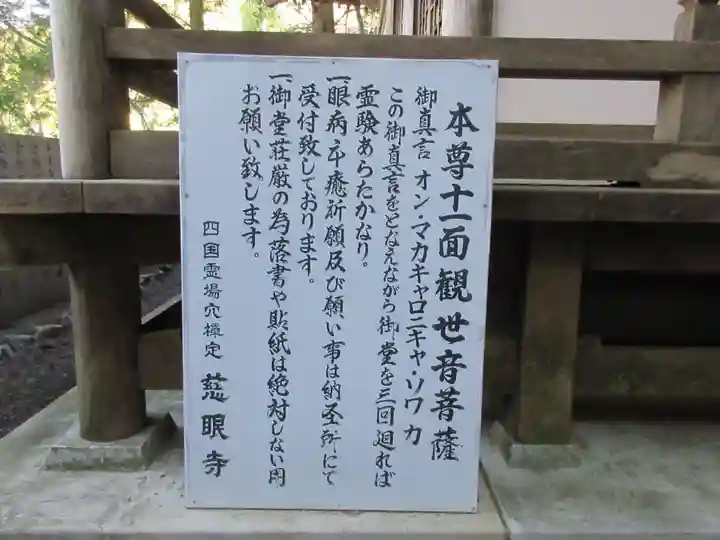 本尊十一面観世音菩薩
御真言 オン・マカキャロニキャ・ソワカ
この御真言をとなえながら御堂を三回廻れば
霊験あらたかなり。
一、眼病平癒祈願及び願い事は納経所にて
受付致しております。
一、御堂荘厳の為落書や貼紙は絶対しない用
お願い致します。
四国霊場穴禅定 慈眼寺